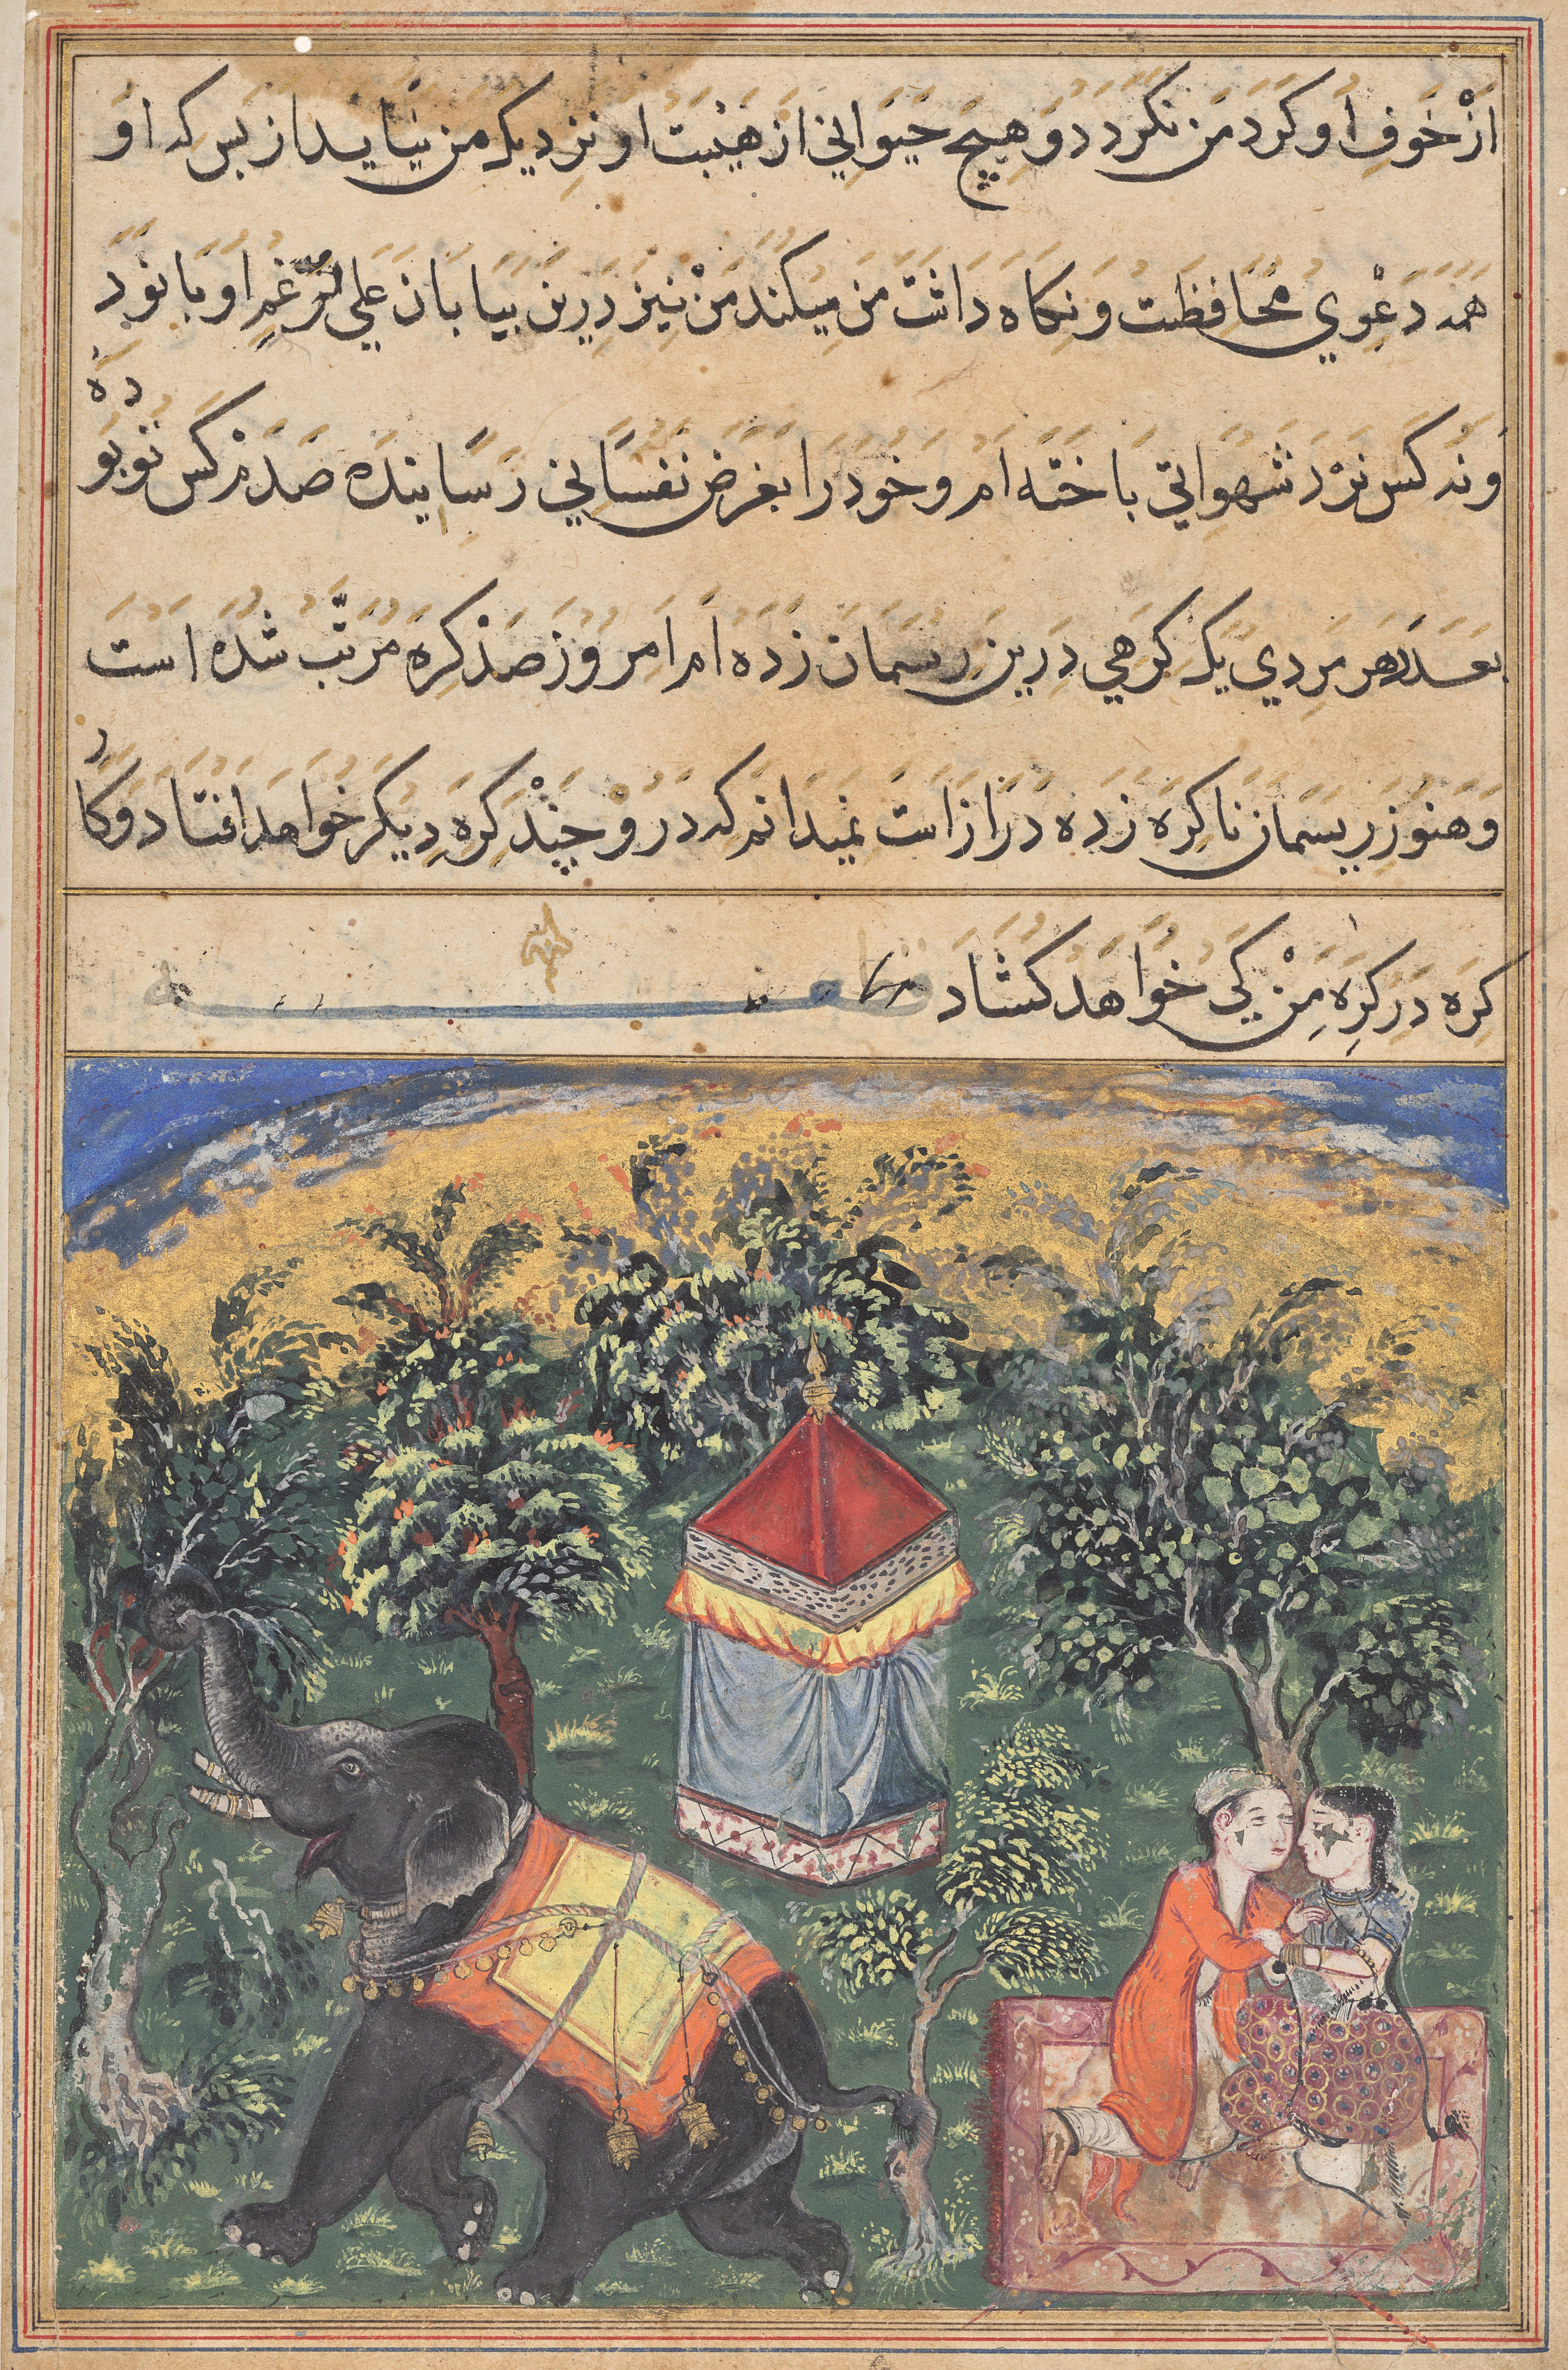 از خَوفِ او کردِ من نکردد و هیچ حیواني از هیبت او نزدیک من نیاید از بس که او
همه دعوي محافظت و نکاه داشت من میکند من نیز درین بیابان علي الرّغمِ او با نود
و نه کس نرد شهواني باخته ام و خود را بغرض نفساني رسانیده صدم کس تو بوده
بعدد هر مردي یک کرهي درین ریسمان زده ام امروز صد کره مرتّب شده است
و هنوز ریسمان ناکره زده دراز است نمیدانم که درو چند کره دیکر خواهد افتاد و کار
کره در کره من کي خواهد کشاد